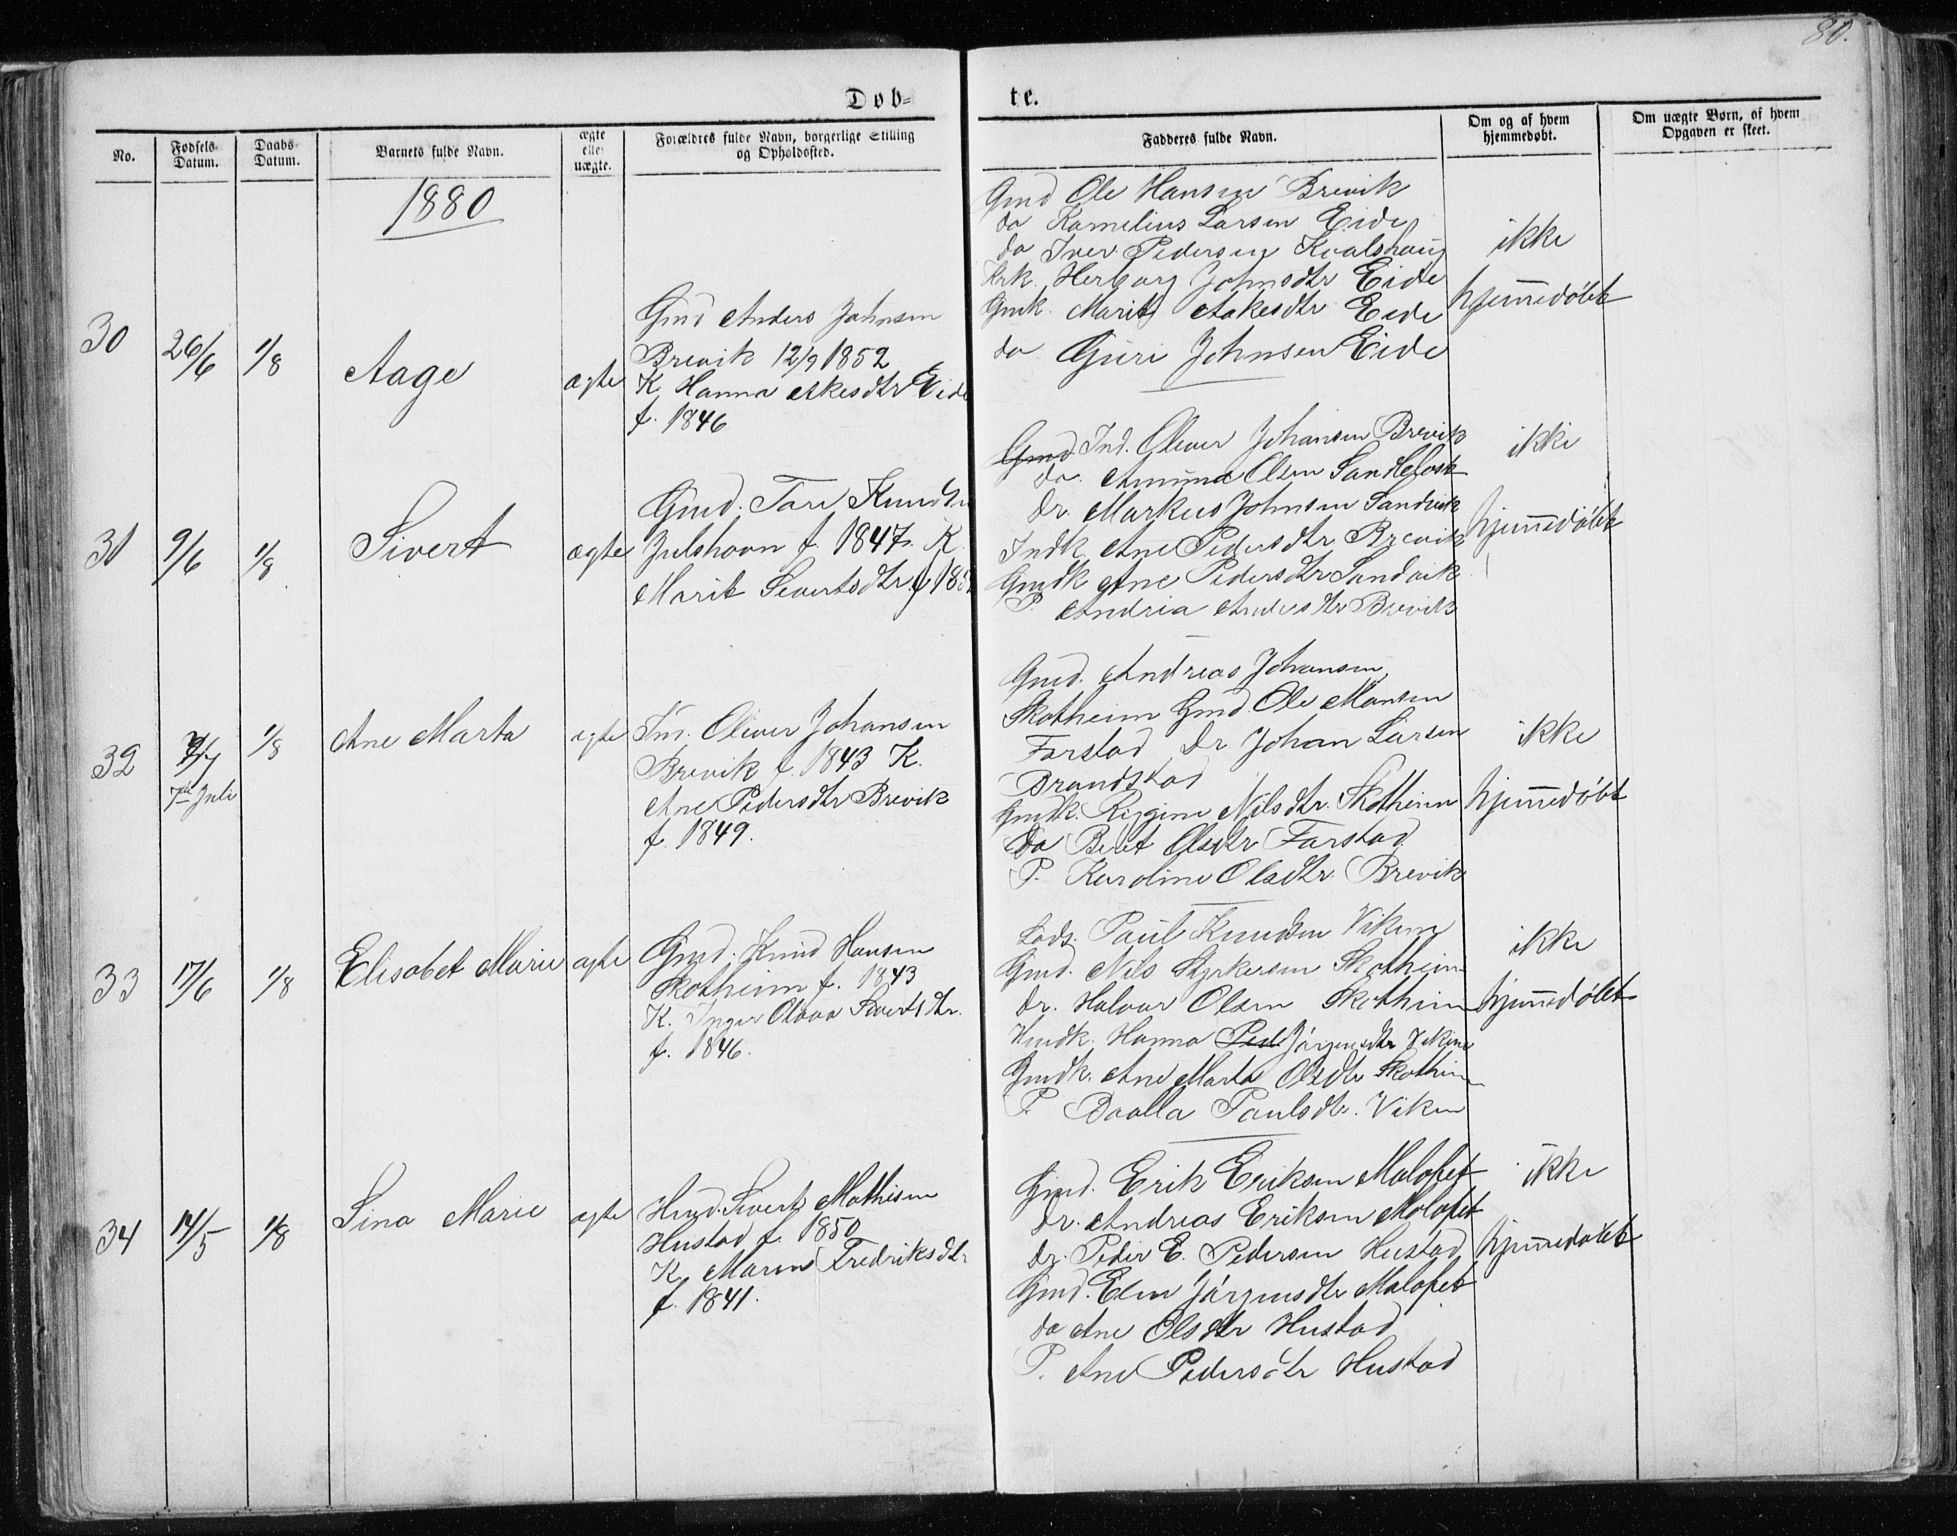 80.
Døb-
te.
No.
Fødsels-
Datum.
Daabs-
Datum.
Barnets fulde Navn.
ægte
eller
uægte.
Forældres fulde Navn, borgerlige Stilling
og Opholdssted.
Fadderes fulde Navn.
Om og af hvem
hjemmedøbt.
Om uægte Børn, af hvem
Opgaven er skeet.
1880
30
26/6
1/8
Aage
ægte
Gmd Anders Johnsen
Brevik 12/9 1852
K Hanna Akesdtr Eide
f. 1846
Gmd Ole Hansen Brevik
do Kornelius Larsen Eide
do Iver Pedersen Kvalshaug
Herborg Johnsdtr Eide
Gmk. Marit Aakesdtr Eide
do Guri Johnsen Eide
ikke
hjemmedøbt
31
9/6
1/8
Sivert
ægte
Gmd. Tore Knudsen
Julshavn f. 1847. K.
Marit Sivertsdtr f 185
Gmd Ind. Oliver Johansen Brevik
do. Amund Olsen
Dr. Markus Johnsen Sandvik
Indk Ane Pedersdtr Brevik
Gmdk Ane Pedersdtr Sandvik
P. Andria Andersdtr Brevik
ikke
hjemmedøbt
32
7/7
7de Juli
1/8
Ane Marta
ægte
Ind. Oliver Johansen
Brevik f. 1843 K.
Ane Pedersdtr Brevik
f. 1849.
Gmd. Andreas Johansen
Skotheim Gmd. Ole Monsen
Farstad Dr Johan Larsen
Brandstad
Gmdk. Nilsdtr. Skotheim
Do Berit Olsdtr Farstad
P. Karoline Olsdtr Brevik
ikke
hjemmedøbt
33
17/6
1/8
Elisabet Marie
ægte
Gmd. Knud Hansen
Skotheim f. 1843
K. Inger Olava Sivertsdtr.
f. 1846.
Lods. Paul Knudsen Viken
Gmd. Nils Styrkersen Skotheim
Dr. Halvor Olsen Skotheim
Hmdk. Hanna Ped Jörgensdtr Viken
Gmdk. Ane Marta Olsdtr Skotheim
P. Paulsdtr. Viken
ikke
hjemmedøbt
34
14/5
1/8
Sina Marie
ægte
Hmd. Sivert Mathisen
Hustad f. 1850
K. Maren Fredriksdtr
f. 1841.
Gmd. Erik Eriksen Malefet
Dr. Andreas Eriksen Malefet
Dr. Peder E. Pedersen Hustad
Gmd. Elen Jörgensdtr Malefet
do Ane Olsdtr Hustad
P. Ane Pedersdtr Hustad
ikke
hjemmedøbt